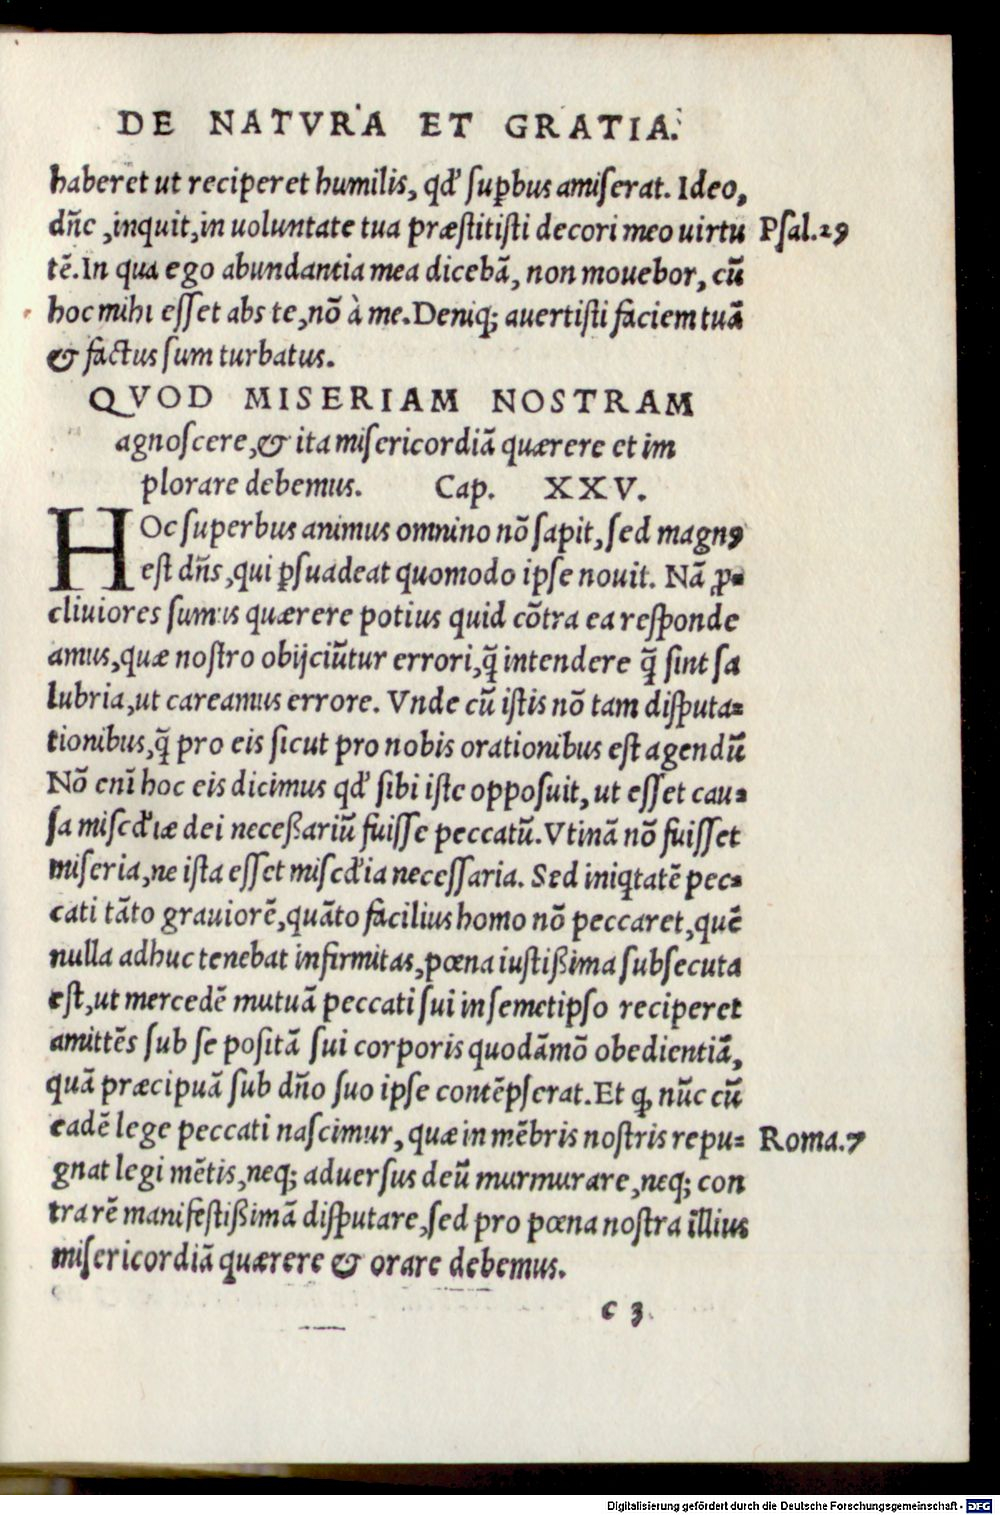 DE NATVRA ET GRATIA.
haberet ut reciperet humilis, qđ suꝑbus amiserat. Ideo,
dñe ,inquit,in uoluntate tua præstitisti decori meo uirtu Psal.29
tẽ.In qua ego abundantia mea dicebã, non mouebor, cũ
hoc mihi esset abs te,nõ à me.Deniq; auertisti faciem tuã
& factus sum turbatus.
QVOD MISERIAM NOSTRAM
agnoscere,& ita misericordiã quærere et im
plorare debemus. Cap. XXV.
HOc superbus animus omnino nõ sapit, sed magnꝰ
est dñs,qui ꝑsuadeat quomodo ipse nouit. Nã ꝓ-
cliuiores sumus quærere potius quid cõtra ea responde
amus,quæ nostro obijciũtur errori,q̃ intendere q̃ sint sa
lubria,ut careamus errore. Vnde cũ istis nõ tam disputa-
tionibus,q̃ pro eis sicut pro nobis orationibus est agendũ
Nõ enĩ hoc eis dicimus qđ sibi iste opposuit, ut esset cau-
sa miscđiæ dei neceßariũ fuisse peccatũ.Vtinã nõ fuisset
miseria,ne ista esset miscđia necessaria. Sed iniqtatẽ pec-
cati tãto grauiorẽ,quãto facilius homo nõ peccaret,quẽ
nulla adhuc tenebat infirmitas,pœna iustißima subsecuta
est,ut mercedẽ mutuã peccati sui in semetipso reciperet
amittẽs sub se positã sui corporis quodãmõ obedientiã,
quã præcipuã sub dño suo ipse contẽpserat.Et ꝙ nũc cũ
eadẽ lege peccati nascimur, quæ in mẽbris nostris repu- Roma.7
gnat legi mẽtis,neq; aduersus deũ murmurare,neq; con
tra rẽ manifestißimã disputare,sed pro pœna nostra illius
misericordiã quærere & orare debemus.
c 3
Digitalisierung gefördert durch die Deutsche Forschungsgemeinschaft - DFG